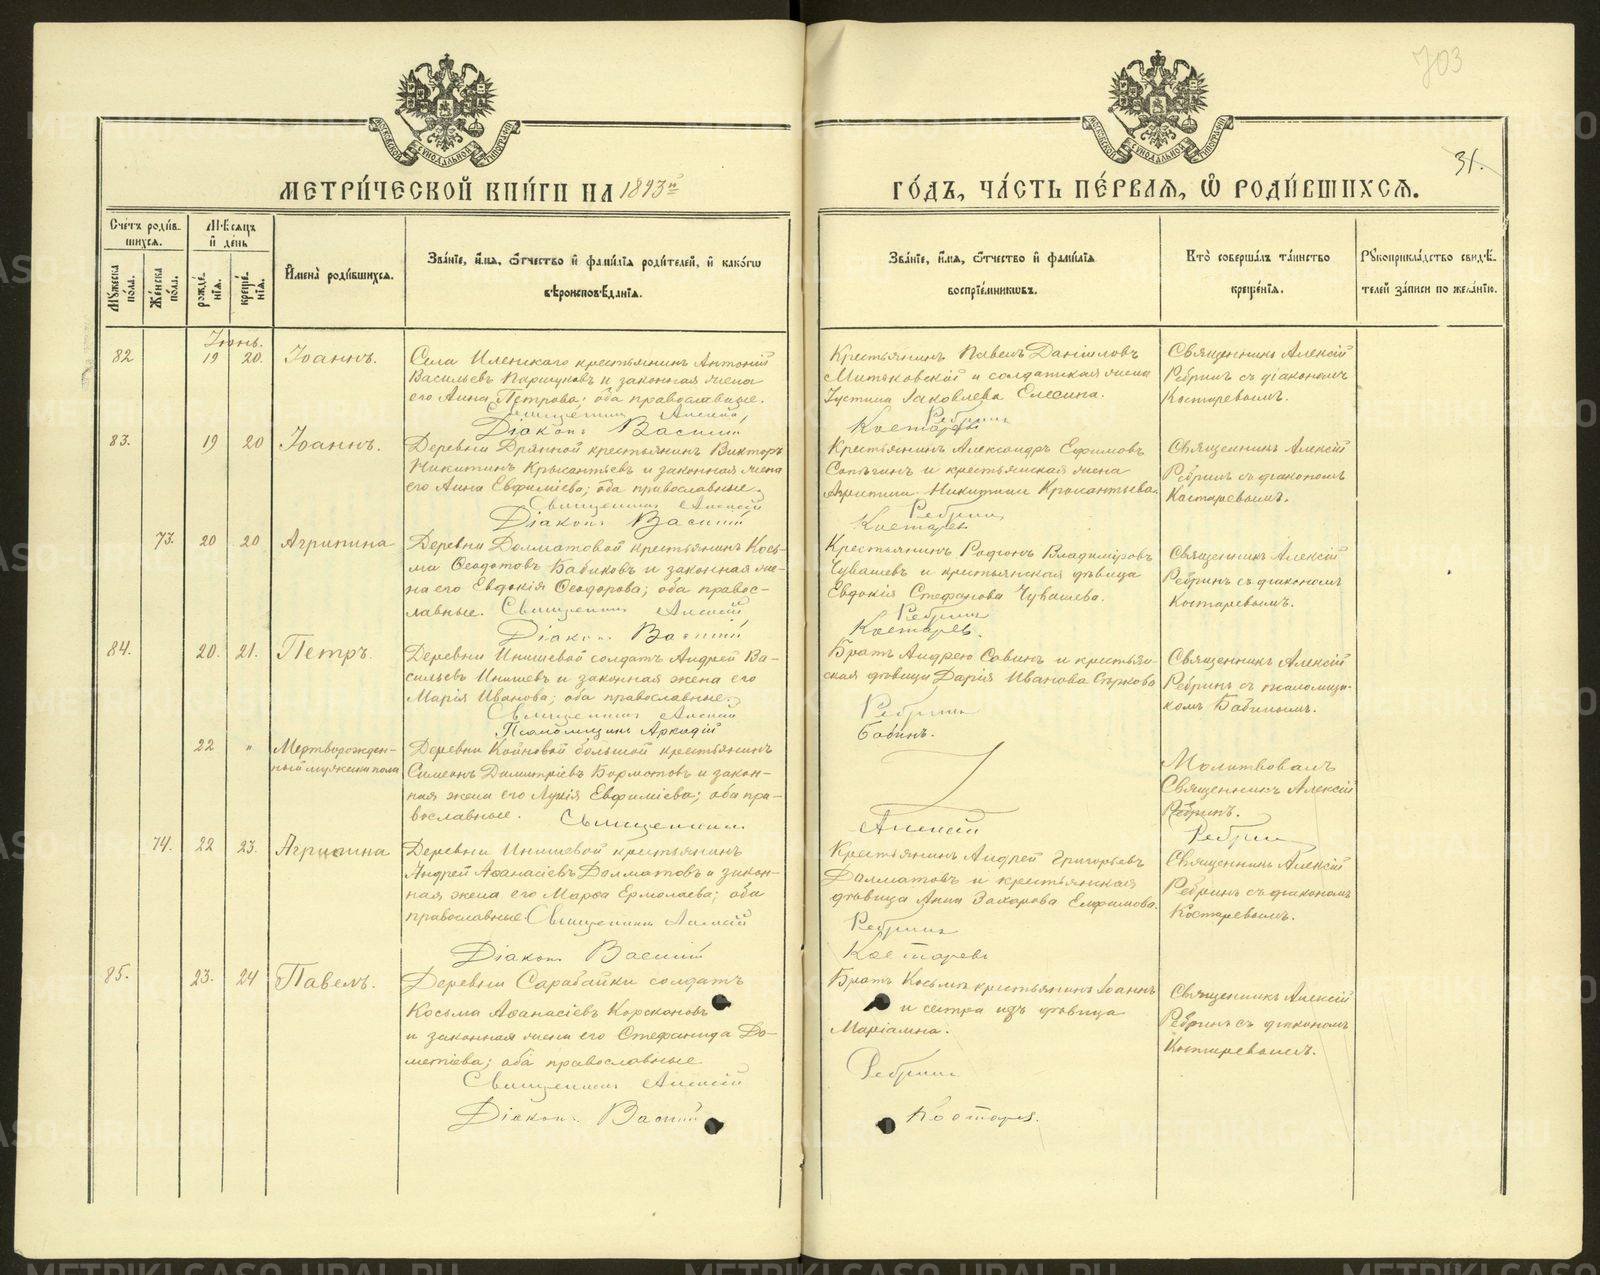 703
31.
МОСКОВСКОЙ СѴНОДАЛЬНОЙ ТИПОГРАФІИ
МОСКОВСКОЙ СѴНОДАЛЬНОЙ ТИПОГРАФІИ
МЕТРИ́ЧЕСКОЙ КНИ́ГИ НА 1893й
ГО́ДЪ, ЧА́СТЬ ПЕ́РВАѦ, Ѡ҆ РОДИ́ВШИХСѦ.
Сче́тъ роди́в-
шихсѧ.
Мѣ́сѧцъ
и҆ де́нь
Мꙋ́жеска
по́ла.
Же́нска
по́ла.
рожде́-
нїѧ.
креще́-
нїѧ.
И҆мена̀ роди́вшихсѧ.
Зва́нїе, и҆́мѧ, ѻ҆́тчество и҆ фами́лїѧ роди́телей, и҆ како́гѡ
вѣроисповѣ́данїѧ.
Зва́нїе, и҆́мѧ, ѻ҆́тчество и҆ фами́лїѧ
воспрїе́мникѡвъ.
Кто̀ соверша́лъ та́инство
креще́нїѧ.
Рꙋкоприкла́дство свидѣ́-
телей за́писи по жела́нїю.
Іюнь.
82 19 20. Іоаннъ.
Села Иленскаго крестьянинъ Антоній
Васильевъ и законная жена
его Анна Петрова; оба православные.
Священникъ Алексій
Діаконъ Василій
Крестьянинъ Павелъ Даніиловъ
и солдатская жена
Іустина Іаковлева Елесина.
Ребринъ
Костаревъ
Священникъ Алексій
Ребринъ съ діакономъ
Костаревымъ.
83. 19 20 Іоаннъ.
Деревни Дрянной крестьянинъ Викторъ
Никитинъ и законная жена
его Анна Евфиміева; оба православные.
Священникъ Алексій
Діаконъ Василій
Крестьянинъ Александръ Ефимовъ
и крестьянская жена
Никитина
Ребринъ
Костаревъ
Священникъ Алексій
Ребринъ съ діакономъ
Костаревымъ.
73. 20 20 Агрипина
Деревни Долматовой крестьянинъ Кось-
ма Ѳеодотовъ Бабиковъ и законная же-
на его Евдокія Ѳеодорова; оба правос-
лавные. Священникъ Алексій
Діаконъ Василій
Крестьянинъ Родіонъ Владиміровъ
Чувашевъ и крестьянская дѣвица
Евдокія Стефанова Чувашева.
Ребринъ
Костарев.
Священникъ Алексій
Ребринъ съ діакономъ
Костаревымъ.
84. 20. 21. Петръ.
Деревни Инишевой солдатъ Андрей Ва-
сильевъ Инишевъ и законная жена его
Марія Иванова; оба православные.
Священникъ Алексій
Псаломщикъ Аркадій
Братъ Андрею Савинъ и крестьян-
ская дѣвица Дарія Иванова
Ребринъ
Бабинъ.
Священникъ Алексій
Ребринъ съ псаломщи-
комъ Бабинымъ.
22 " Мертворожден-
ный мужеска пола
Деревни большой крестьянинъ
Симеонъ Димитріевъ Бормотовъ и закон-
ная жена его Евфиміева; оба пра-
вославные. Священникъ
Алексій
Молитвовалъ
Священникъ Алексій
Ребринъ.
Ребринъ
74. 22 23. Агрипина
Деревни Инишевой крестьянинъ
Андрей Аѳанасіевъ Долматовъ и закон-
ная жена его Марѳа Ермолаева; оба
православные Священникъ Алексій
Діаконъ Василій
Крестьянинъ Андрей Григорьевъ
Долматовъ и крестьянская
дѣвица Анна Захарова Елфимова.
Ребринъ
Костаревъ
Священникъ Алексій
Ребринъ съ діакономъ
Костаревымъ.
85. 23. 24 Павелъ.
Деревни Сарабайки солдатъ
Косьма Аѳанасіевъ
и законная жена его Стефанида До-
метіева; оба православные
Священникъ Алексій
Діаконъ Василій
Братъ Косьмы крестьянинъ Іоаннъ
и сестра ихъ дѣвица
Маріамна.
Ребринъ
Костарев.
Священникъ Алексій
Ребринъ съ діакономъ
Костаревымъ.
METRIKI.GASO-URAL.RU